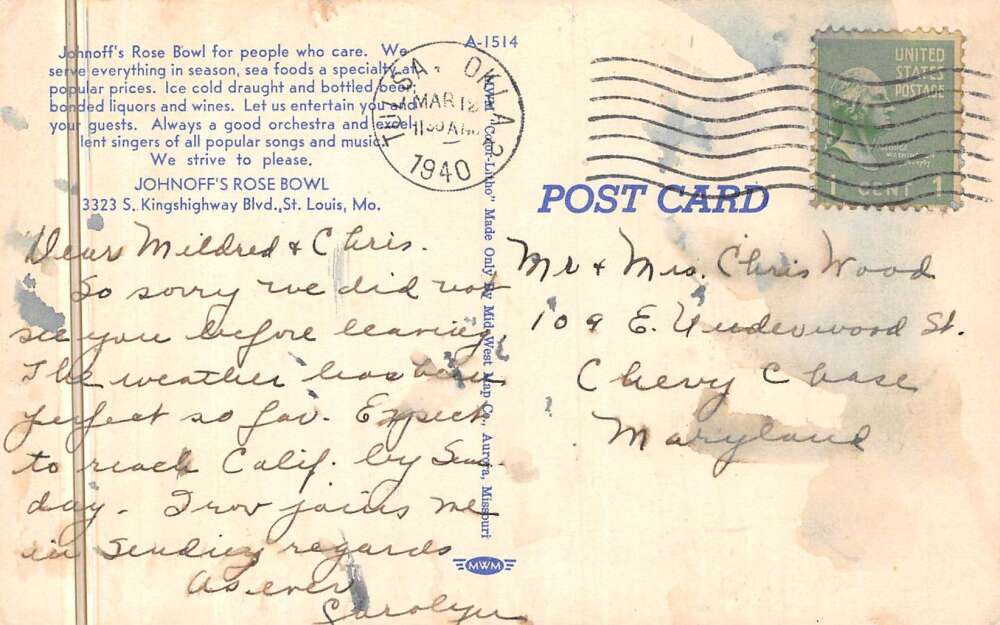 Johnoff's Rose Bowl for people who care. We
serve everything in season, sea foods a specialty at
popular prices. Ice cold draught and bottled beer,
bonded liquors and wines. Let us entertain you and
your guests. Always a good orchestra and excel-
lent singers of all popular songs and music.
We strive to please.
JOHNOFF'S ROSE BOWL
3323 S. Kingshighway Blvd., St. Louis, Mo.
A-1514
TULSA OKLA 2
MAR 12
1130 AM
1940
UNITED
STATES
POSTAGE
GEORGE
WASHINGTON
1 CENT 1
POST CARD
MWM "Color-Litho" Made Only By Mid-West Map Co., Aurora, Missouri
MWM
Dear Mildred & Chris.
So sorry we did not
see you before leaving.
The weather has been
perfect so far. Expect
to reach Calif. by Sun-
day. Trov joins me
in sending regards
As ever
Carolyn
Mr + Mrs. Chris Wood
109 E. Underwood St.
Chevy Chase
Maryland